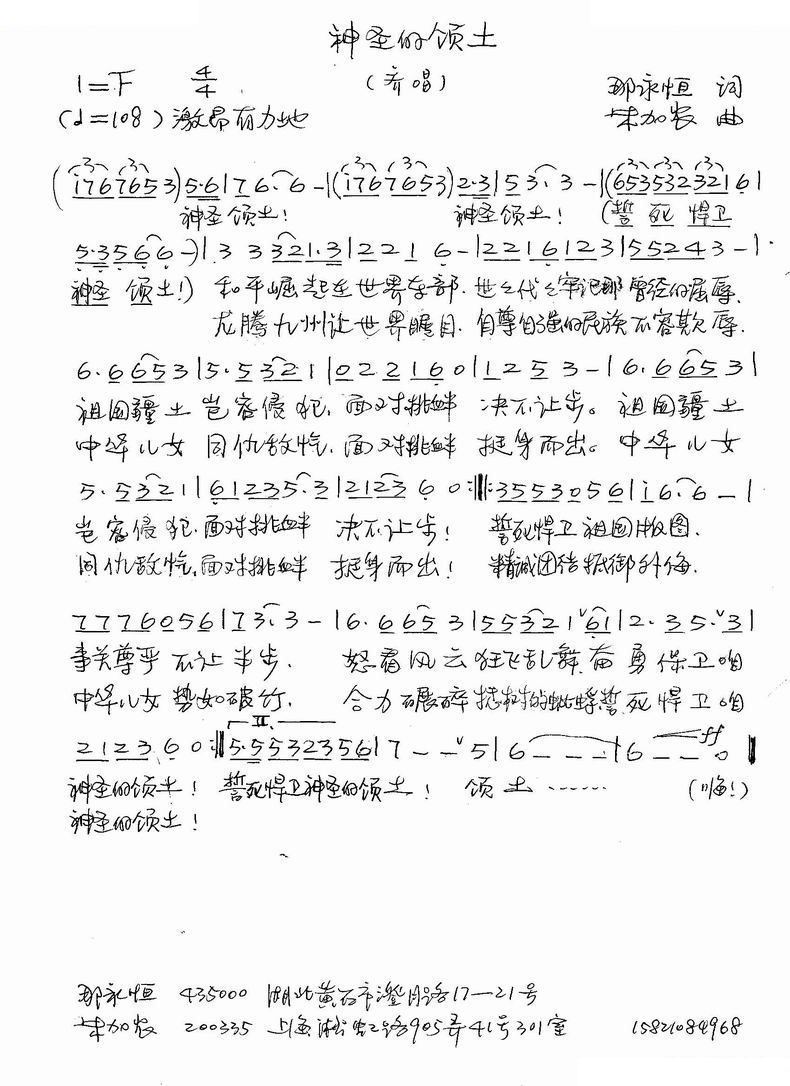 神圣的领土
1=F 4/4 (齐唱) 那永恒 词
(♩=108) 激昂有力地 朱加农 曲
(i 7 6 7 6 5 3) 5·6 | 7 6· 6 - | (i 7 6 7 6 5 3) 2·3 | 5 3· 3 - | (6 5 3 5 3 2 3 2 1 6 |
神圣领土! 神圣领土! (誓死捍卫
5·3 5 6 6 -) | 3 3 3 2 1·3 | 2 2 1 6 - | 2 2 1 6 1 2 3 | 5 5 2 4 3 - |
神圣领土!) 和平崛起在世界东部.世々代々牢记那曾经的屈辱.
龙腾九州让世界瞩目.自尊自强的民族不容欺辱.
6·6 6 5 3 | 5·5 3 2 1 | 0 2 2 2 1 6 0 | 1 2 5 3 - | 6·6 6 5 3 |
祖国疆土岂容侵犯.面对挑衅决不让步。祖国疆土
中华儿女同仇敌忾.面对挑衅挺身而出。中华儿女
5·5 3 2 1 | 6 1 2 3 5·3 | 2 1 2 3 6 0 :‖: 3 5 5 3 0 5 6 | i 6· 6 - |
岂容侵犯.面对挑衅决不让步! 誓死捍卫祖国版图.
同仇敌忾.面对挑衅挺身而出! 精诚团结抵御外侮.
7 7 7 6 0 5 6 | 7 3· 3 - | 6·6 6 5 3 | 5 5 3 2 1 ˅6 1 | 2·3 5·˅3 |
事关尊严不让半步. 怒看风云狂飞乱舞奋勇保卫咱
中华儿女势如破竹. 合力碾碎撼树的蚍蜉誓死捍卫咱
2 1 2 3 6 0 :‖ II. 5·5 5 3 2 3 5 6 | 7 - - ˅5 | 6 - - - | 6 - - 0 ‖ ff
神圣的领土! 誓死捍卫神圣的领土! 领土…… (嗨!)
神圣的领土!
那永恒 435000 湖北黄石市澄月路17—21号
朱加农 200335 上海淞虹路905弄41号301室 15821084968